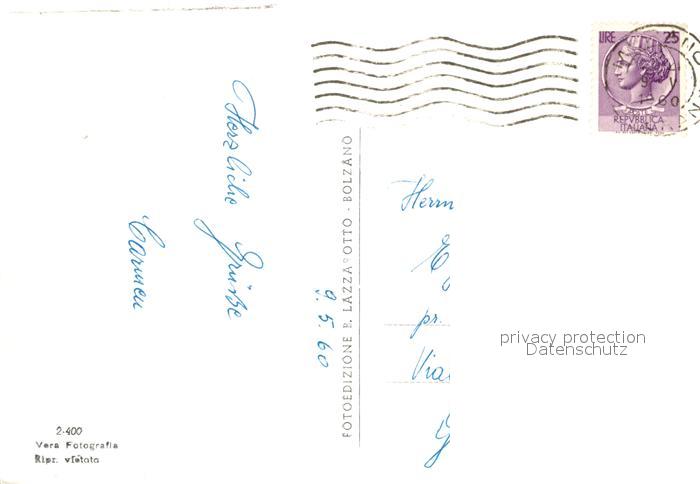 Herzliche Grüsse
Carmen
9.5.60
FOTOEDIZIONE E. LAZZA OTTO - BOLZANO
LIRE 25
REPVBBLICA
ITALIANA
Herrn
pr.
Via
privacy protection
Datenschutz
2-400
Vera Fotografia
Ripr. vietata